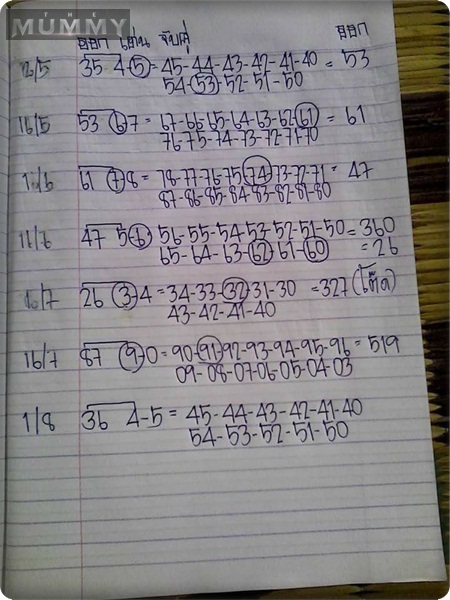 MUMMY
ออก เด่น จับคู่ ออก
35 4(5)-45-44-43-42-41-40 = 53
54-(53)-52-51-50
16/5 53 (6)7 = 67-66-65-64-63-62-(61) = 61
76-75-74-73-72-71-70
61 (7)8 = 78-77-76-75-(74)-73-72-71 = 47
87-86-85-84-83-82-81-80
47 5(6) 56-55-54-53-52-51-50 = 360
65-64-63-(62) 61-(60) = 26
26 (3)-4 = 34-33-(32)-31-30 = 327 (โต๊ด)
43-42-41-40
16/7 87 (9)-0 = 90-(91)-92-93-94-95-96 = 519
09-08-07-06-05-04-03
1/8 36 4-5 = 45-44-43-42-41-40
54-53-52-51-50